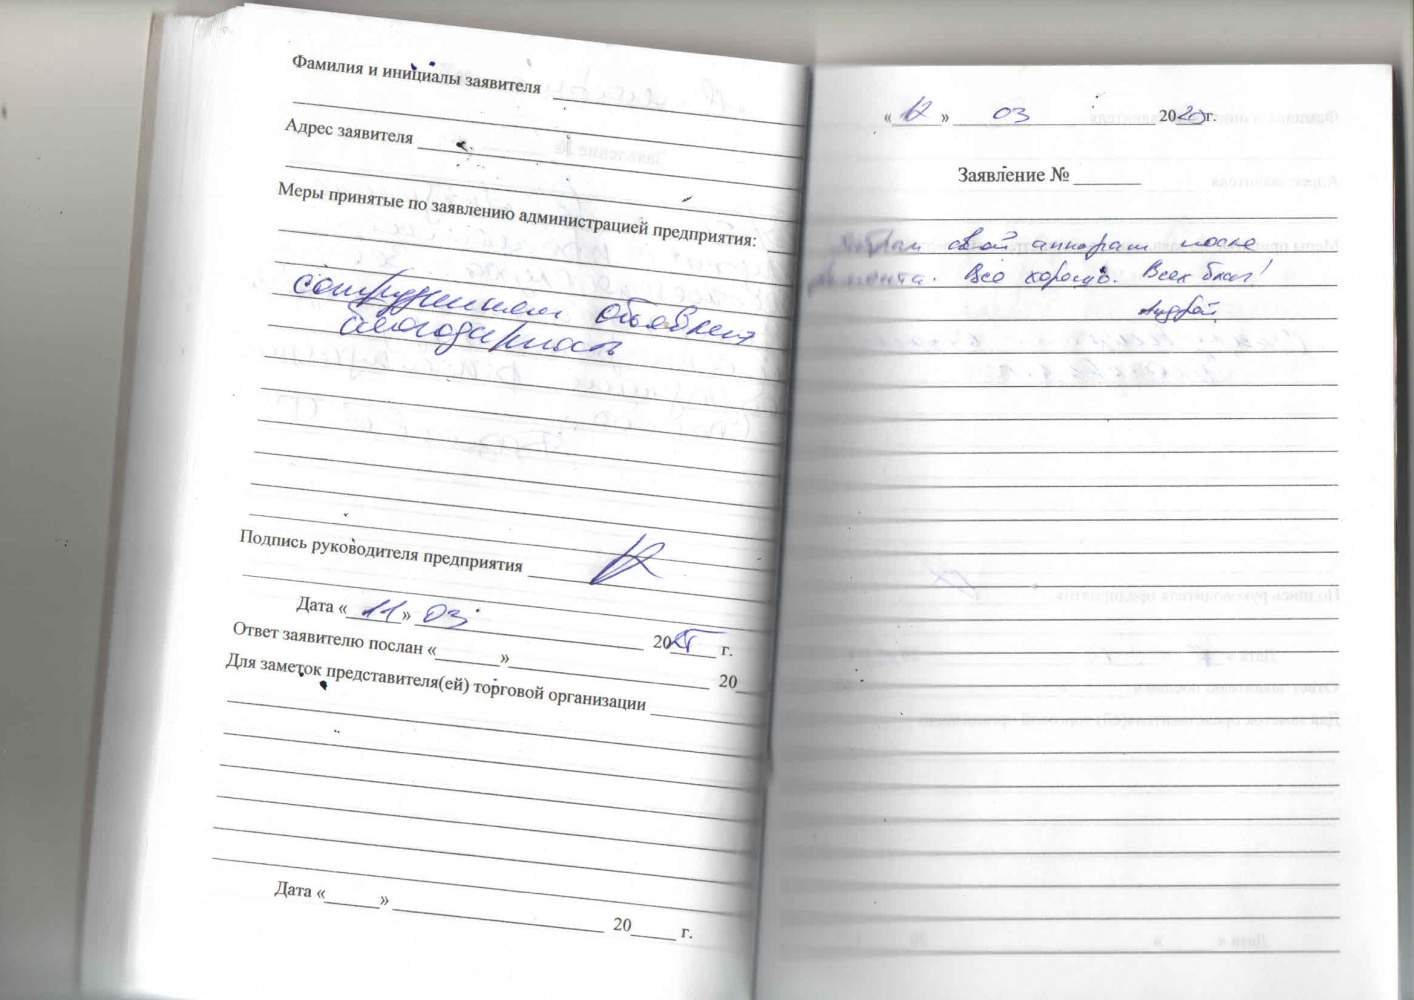 Фамилия и инициалы заявителя
Адрес заявителя
Меры принятые по заявлению администрацией предприятия:
сотрудникам объявлена
благодарность
Подпись руководителя предприятия
Дата « 11 » 03 20 г.
Ответ заявителю послан « » 20
Для заметок представителя(ей) торговой организации
Дата « » 20 г.
« » 03 2020 г.
Заявление №
забрал свой аппарат после
ремонта. Всё хорошо. Всех благ!
Андрей